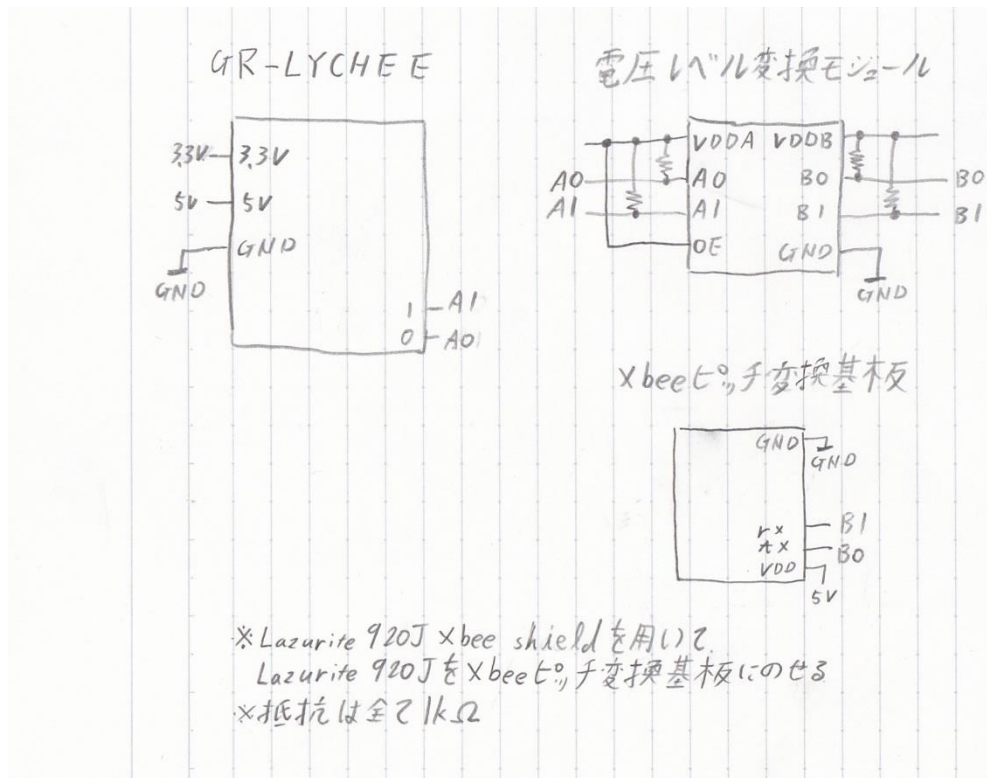 GR-LYCHEE
3.3V 3.3V
5V 5V
GND
GND
1 A1
0 A0
電圧レベル変換モジュール
VDDA VDDB
A0 A0 B0 B0
A1 A1 B1 B1
OE GND
GND
Xbeeピッチ変換基板
GND
GND
rx B1
tx B0
VDD
5V
※Lazurite 920J Xbee shieldを用いて
Lazurite 920JをXbeeピッチ変換基板にのせる
※抵抗は全て1kΩ